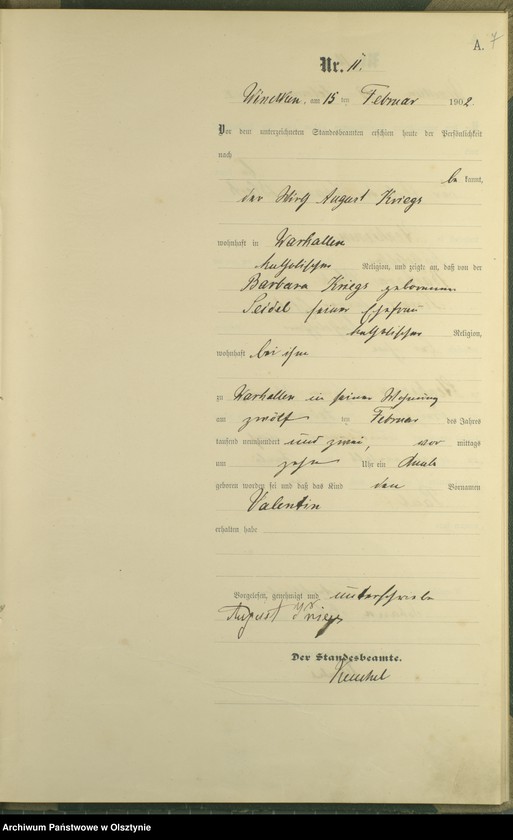 A. 7
Nr. 11.
am 15 ten Februar 1902
Vor dem unterzeichneten Standesbeamten erschien heute der Persönlichkeit
nach
be kannt,
der Wirth August Kriegs
wohnhaft in Warkallen
katholischer Religion, und zeigte an, daß von der
Barbara Kriegs geborenen
Seidel seiner Ehefrau
katholischer Religion,
wohnhaft bei ihm
zu Warkallen in seiner Wohnung
am zwölf ten Februar des Jahres
tausend neunhundert und zwei, vor mittags
um zehn Uhr ein Knabe
geboren worden sei und daß das Kind den Vornamen
Valentin
erhalten habe
Vorgelesen, genehmigt und unterschrieben
August Kriegs
Der Standesbeamte.
Archiwum Państwowe w Olsztynie